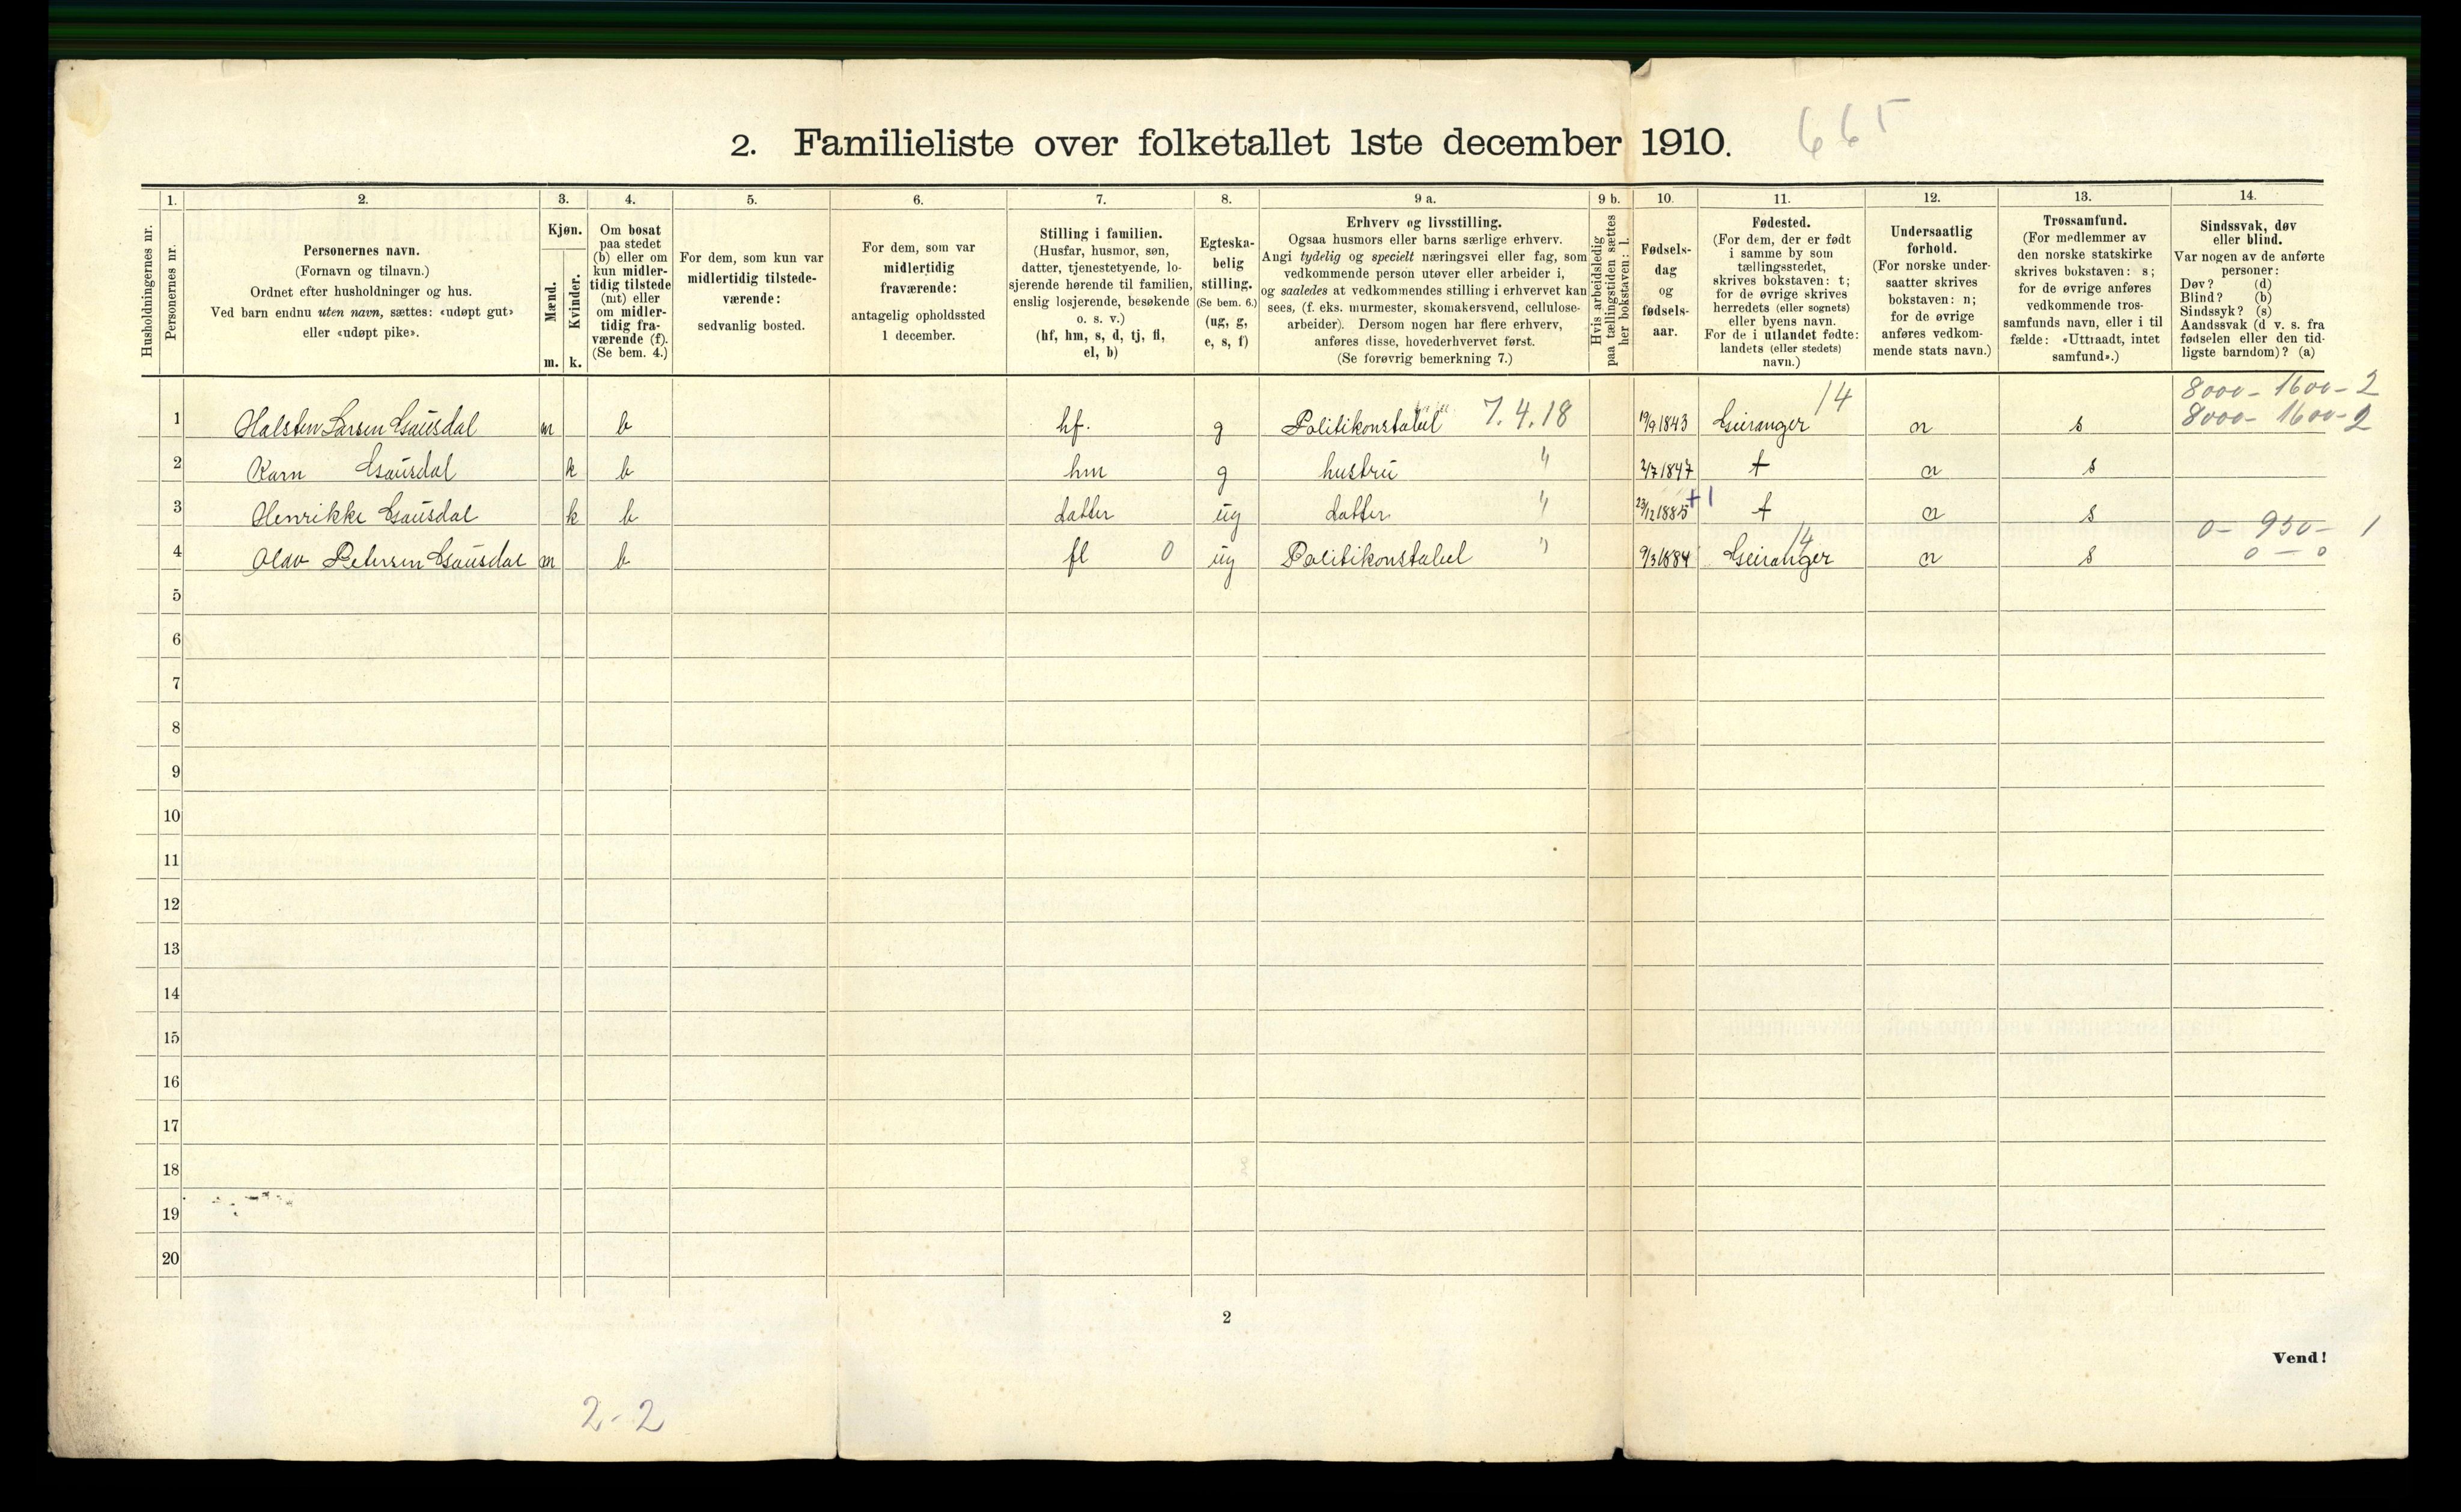 2. Familieliste over folketallet 1ste december 1910.
665
Husholdningernes nr.
1.
Personernes nr.
2.
Personernes navn.
(Fornavn og tilnavn.)
Ordnet efter husholdninger og hus.
Ved barn endnu uten navn, sættes: «udøpt gut»
eller «udøpt pike».
3.
Kjøn.
Mænd.
Kvinder.
m. k.
4.
Om bosat
paa stedet
(b) eller om
kun midler-
tidig tilstede
(mt) eller
om midler-
tidig fra-
værende (f).
(Se bem. 4.)
5.
For dem, som kun var
midlertidig tilstede-
værende:
sedvanlig bosted.
6.
For dem, som var
midlertidig
fraværende:
antagelig opholdssted
1 december.
7.
Stilling i familien.
(Husfar, husmor, søn,
datter, tjenestetyende, lo-
sjerende hørende til familien,
enslig losjerende, besøkende
o. s. v.)
(hf, hm, s, d, tj, fl,
el, b)
8.
Egteska-
belig
stilling.
(Se bem. 6.)
(ug, g,
e, s, f)
9 a.
Erhverv og livsstilling.
Ogsaa husmors eller barns særlige erhverv.
Angi tydelig og specielt næringsvei eller fag, som
vedkommende person utøver eller arbeider i,
og saaledes at vedkommendes stilling i erhvervet kan
sees, (f. eks. murmester, skomakersvend, cellulose-
arbeider). Dersom nogen har flere erhverv,
anføres disse, hovederhvervet først.
(Se forøvrig bemerkning 7.)
9 b.
Hvis arbeidsledig
paa tællingstiden sættes
her bokstaven: l.
10.
Fødsels-
dag
og
fødsels-
aar.
11.
Fødested.
(For dem, der er født
i samme by som
tællingsstedet,
skrives bokstaven: t;
for de øvrige skrives
herredets (eller sognets)
eller byens navn.
For de i utlandet fødte:
landets (eller stedets)
navn.)
12.
Undersaatlig
forhold.
(For norske under-
saatter skrives
bokstaven: n;
for de øvrige
anføres vedkom-
mende stats navn.)
13.
Trossamfund.
(For medlemmer av
den norske statskirke
skrives bokstaven: s;
for de øvrige anføres
vedkommende tros-
samfunds navn, eller i til
fælde: «Uttraadt, intet
samfund».)
14.
Sindssvak, døv
eller blind.
Var nogen av de anførte
personer:
Døv? (d)
Blind? (b)
Sindssyk? (s)
Aandssvak (d v. s. fra
fødselen eller den tid-
ligste barndom)? (a)
14 8000 - 1600 - 2
1 Halsten Larsen Gausdal m b hf. g Politikonstabel 7.4.18 19/9 1843 Geiranger n s 8000 - 1600 - 2
2 Karn Gausdal k b hm g hustru " 2/7 1847 t n s
3 Henrikke Gausdal k b datter ug datter " 23/12 1885 +1 t n s
14 0 - 950 - 1
4 Olav Petersen Gausdal m b fl 0 ug Politikonstabel " 9/3 1884 Geiranger n s 0 - 0
5
6
7
8
9
10
11
12
13
14
15
16
17
18
19
20
2
Vend!
2-2